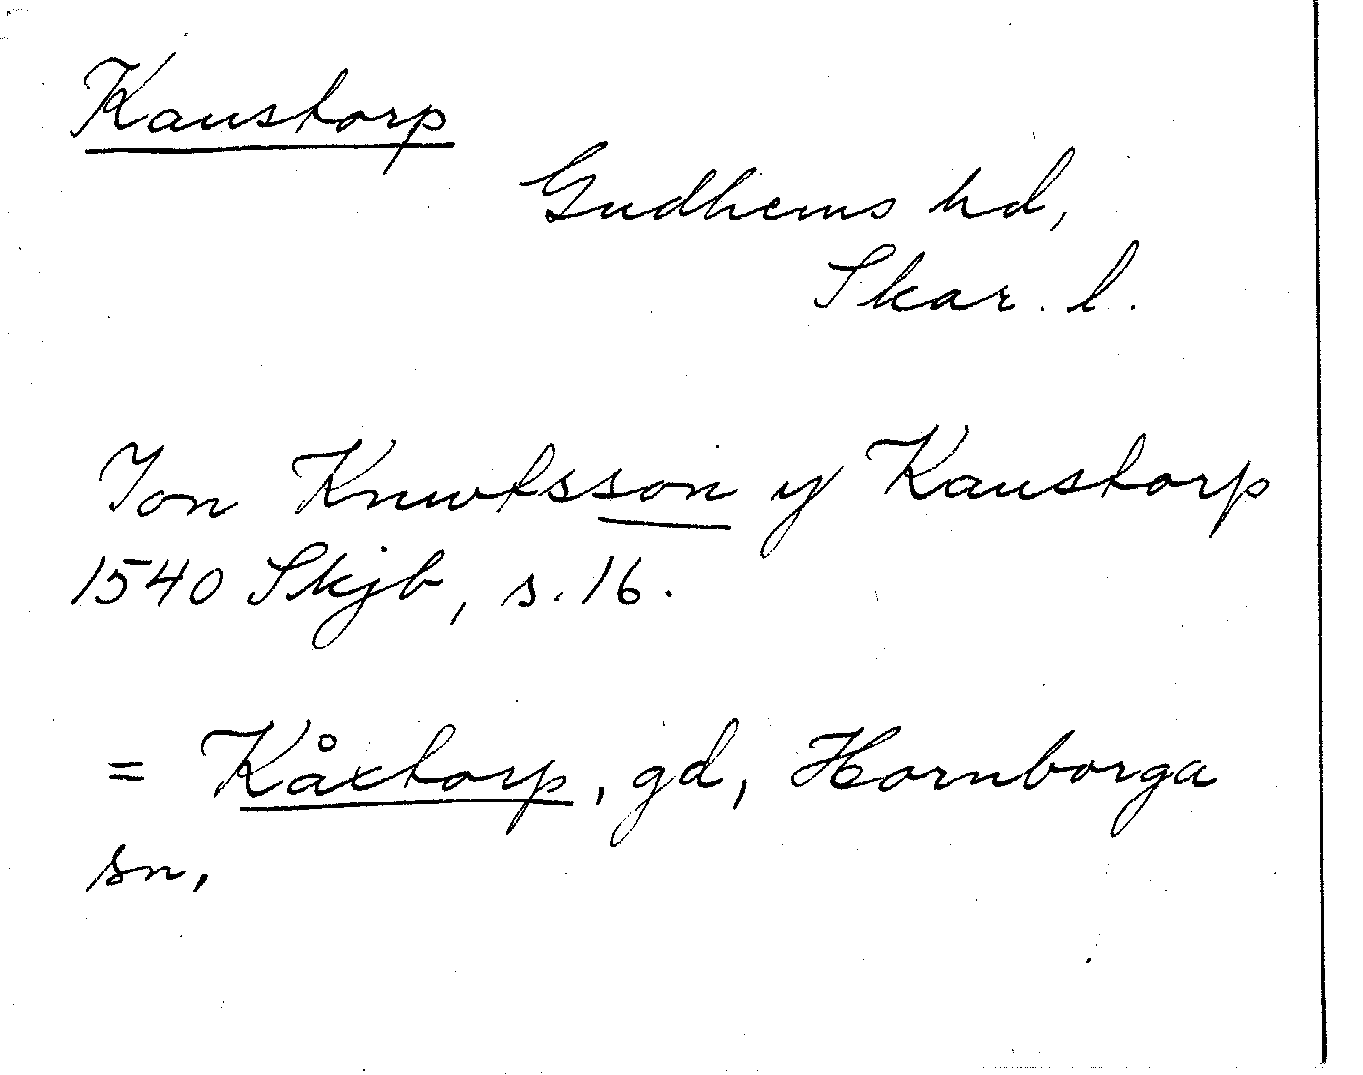 Kaustorp
Gudhems hd,
Skar. l.
Jon Knwtsson y Kaustorp
1540 Skjb, s. 16.
= Kåxtorp, gd, Hornborga
sn,